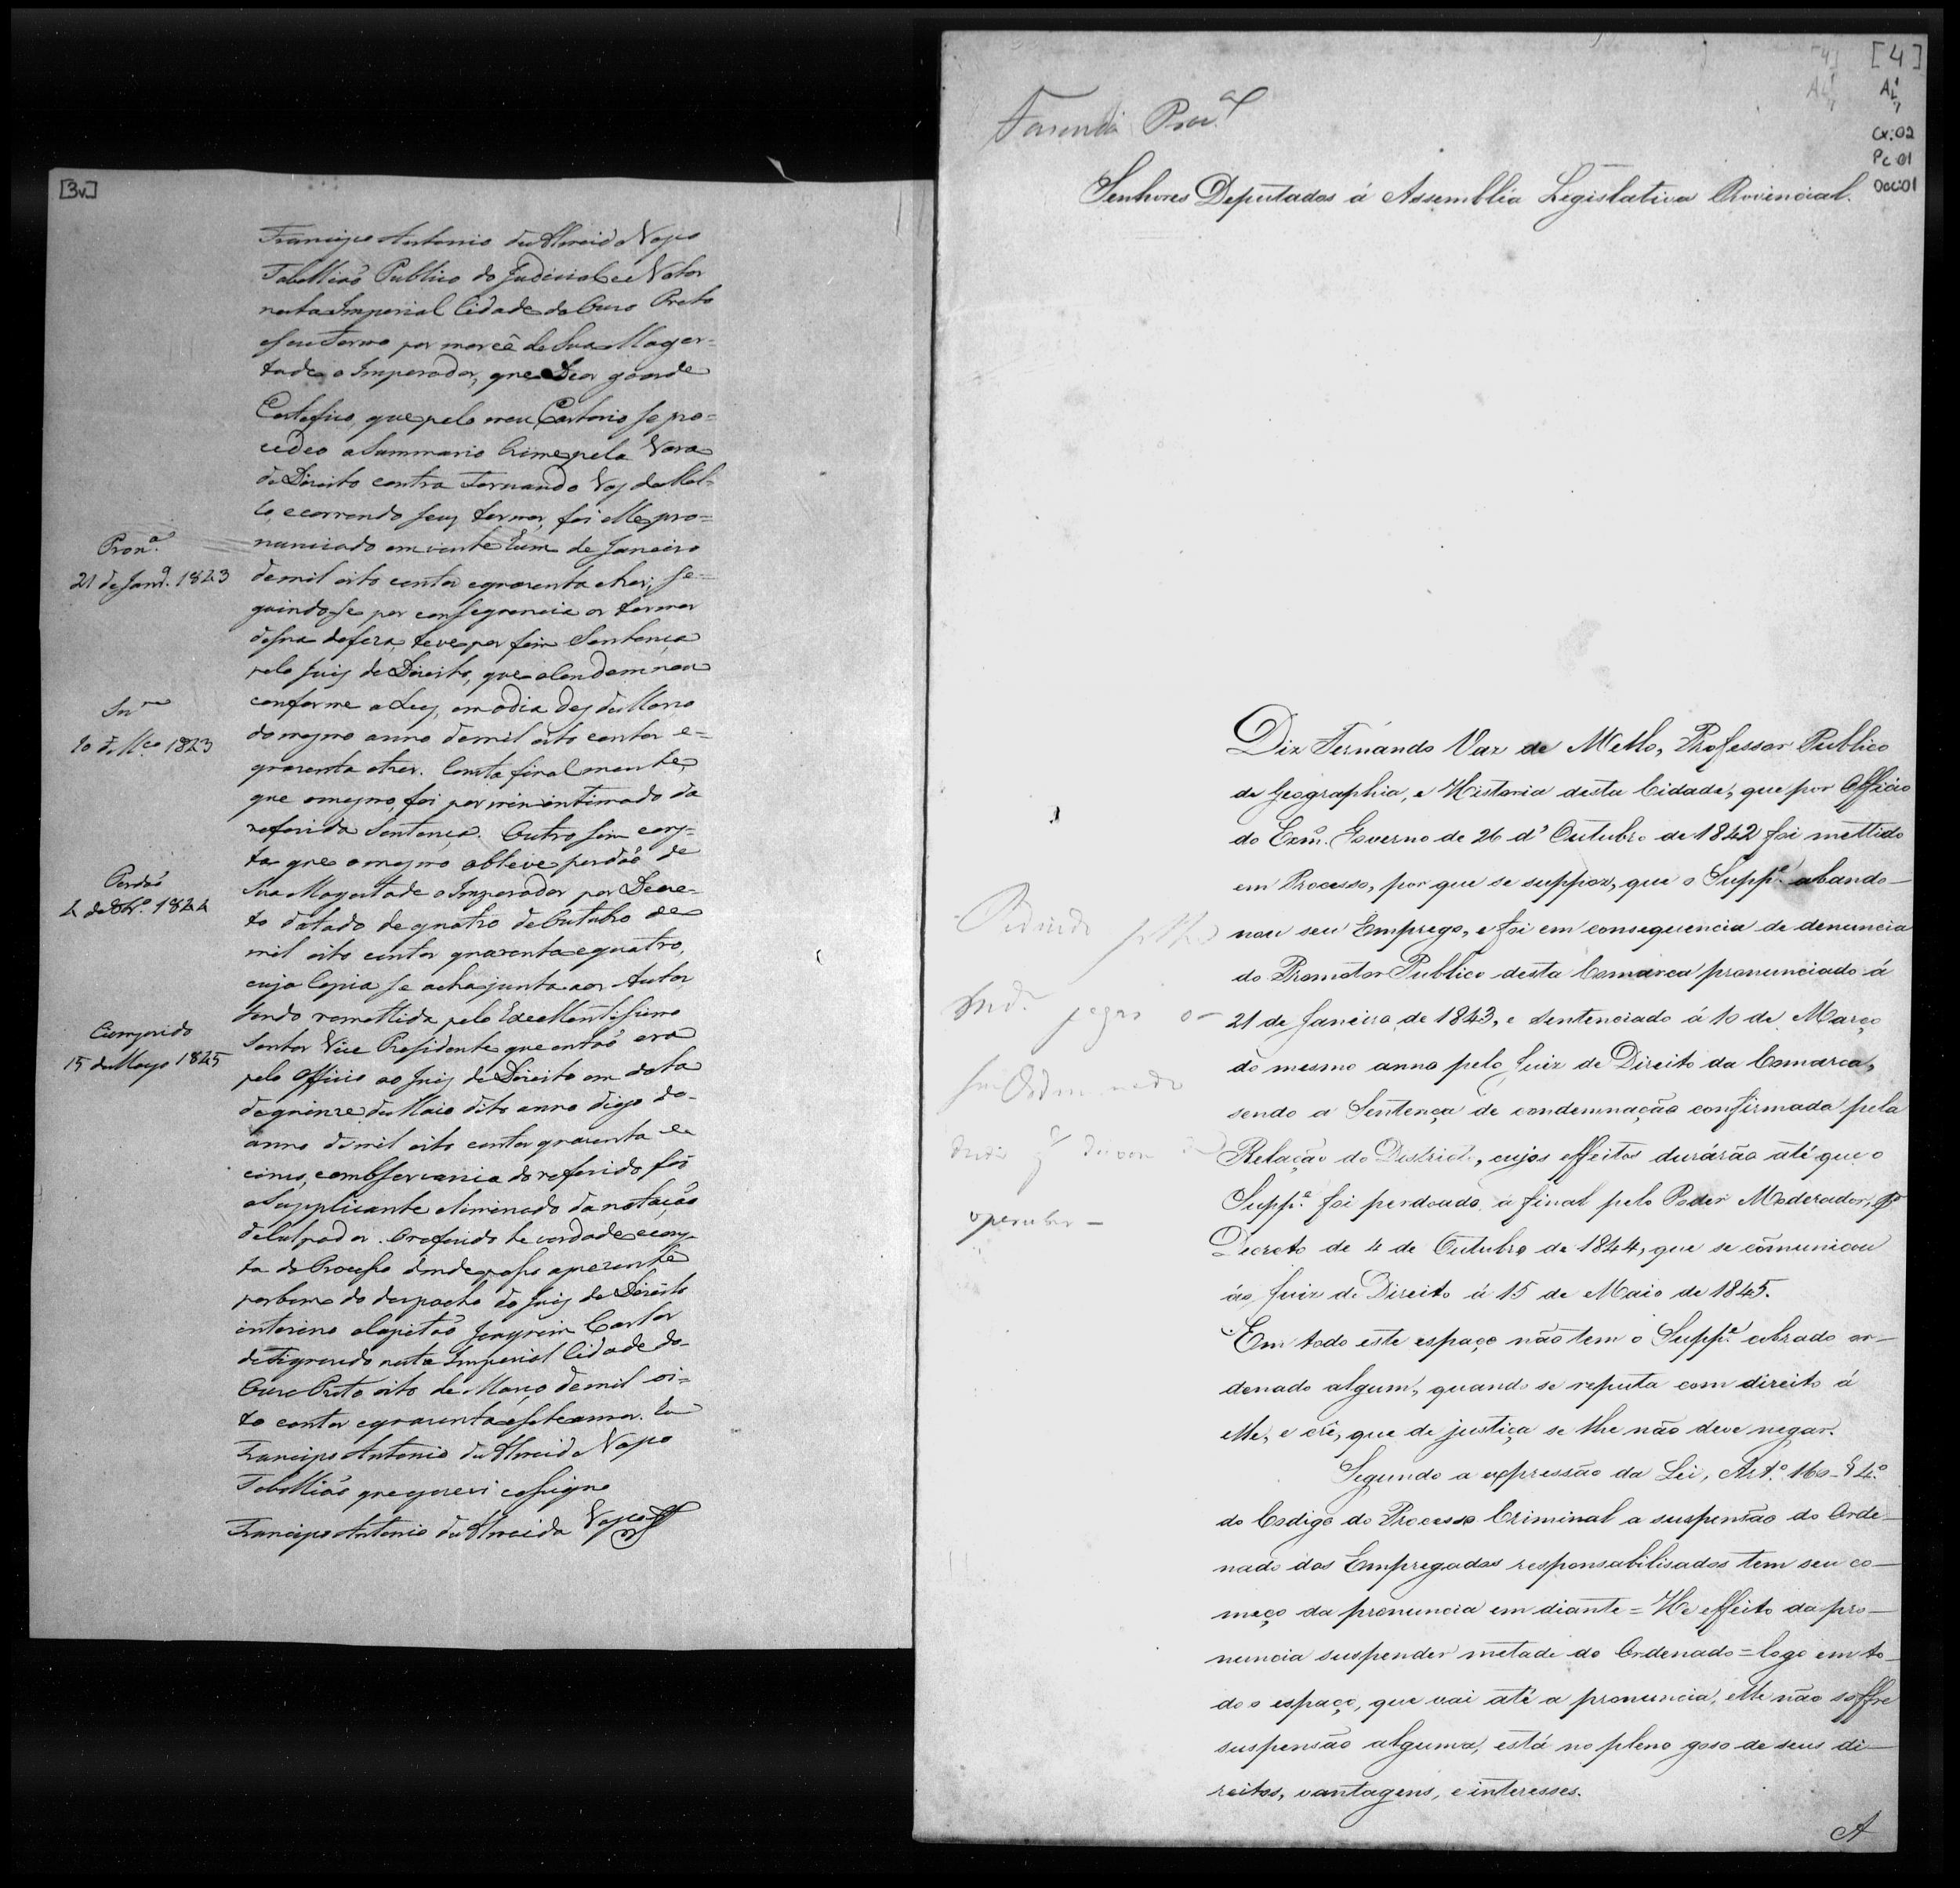 [3v]
Francisco Antonio de Almeida Vapo
Tabelliaõ Publico do Judicial e Notas
nesta Imperial Cidade do Ouro Preto
e seu Termo por mercê de Sua Mages=
tade o Imperador, que Deos guarde
Certefico, que pelo meu Cartorio se pro=
cedeo a Summario Crime pela Vara
de Direito contra Fernando Vaz de Mel=
lo, e correndo seus termos, foi elle pro=
nunciado em vinte e um de Janeiro
de mil oito centos e quarenta e tres; se=
guindo-se por consequencia os termos
de sua defeza, teve por fim Sentença
pelo Juiz de Direito, que o Condemnou
conforme a Ley, em o dia dez de Março
do mesmo anno de mil oito centos e=
quarenta e tres. Consta finalmente,
que o mesmo, foi por mim intimado da
referida Sentença. Outro sim cons=
ta que o mesmo obteve perdaõ de
Sua Magestade o Imperador por Decre=
to datado de quatro de Outubro de
mil oito centos quarenta e quatro,
cuja Copia se acha junta aos Autos,
sendo remettida pelo Excellentissimo
Senhor Vice Presidente que entaõ era
pelo Officio ao Juiz de Direito em data
de quinze de Maio dito anno digo do-
anno de mil oito centos quarenta e
cinco, com observancia do referido foi
o Supplicante eliminado da notaçaõ
de Culpados. O referido he verdade e cons-
ta do Processo donde passo a perente
por bem do despacho do Juiz de Direito
interino o Capitaõ Joaquim Carlos
de Figueiredo nesta Imperial Cidade do
Ouro Preto oito de Março de mil oi=
to centos e quarenta e sete annos. Eu
Francisco Antonio de Almeida Vapo
Tabelliaõ que escrevi e assigno
Francisco Antonio de Almeida Vapo
Pron.ª
21 de Janr.º 1843
Sn.ça
10 de M.ço 1843
Perdaõ
4 de Obr.º 1844
Cumprido
15 de Mayo 1845
[4]
AL
Cx:02
Pc 01
Doc:01
Fazenda Pro.al
Senhores Deputados á Assembléa Legislativa Provincial.
Diz Fernando Vaz de Mello, Professor Publico
de Geographia, e Historia desta Cidade, que por Officio
do Exm.º Governo de 26 d'Outubro de 1842 foi mettido
em Processo, por que se suppoz, que o Supp.e abando-
nou seu Emprego, e foi em consequencia de denuncia
do Promotor Publico desta Comarca pronunciado á
21 de Janeiro de 1843, e sentenciado á 10 de Março
do mesmo anno pelo Juiz de Direito da Comarca,
sendo a Sentença de condemnação confirmada pela
Relação do Districto, cujos effeitos durárão até que o
Supp.e foi perdoado a final pelo Poder Moderador, p.r
Decreto de 4 de Outubro de 1844, que se cõmunicou
áo Juiz de Direito á 15 de Maio de 1845.
Em todo este espaço não tem o Supp.e cobrado or-
denado algum, quando se reputa com direito á
elle, e crê, que de justiça se lhe não deve negar.
Segundo a expressão da Lei, Art.º 165 § 4.º
do Codigo do Processo Criminal a suspensão do Orde-
nado dos Empregados responsabilisados tem seu co-
meço da pronuncia em diante = He effeito da pro-
nuncia suspender metade do Ordenado = logo em to-
do o espaço, que vai até a pronuncia, elle não soffre
suspensão alguma, está no pleno goso de seus di-
reitos, vantagens, e interesses.
A